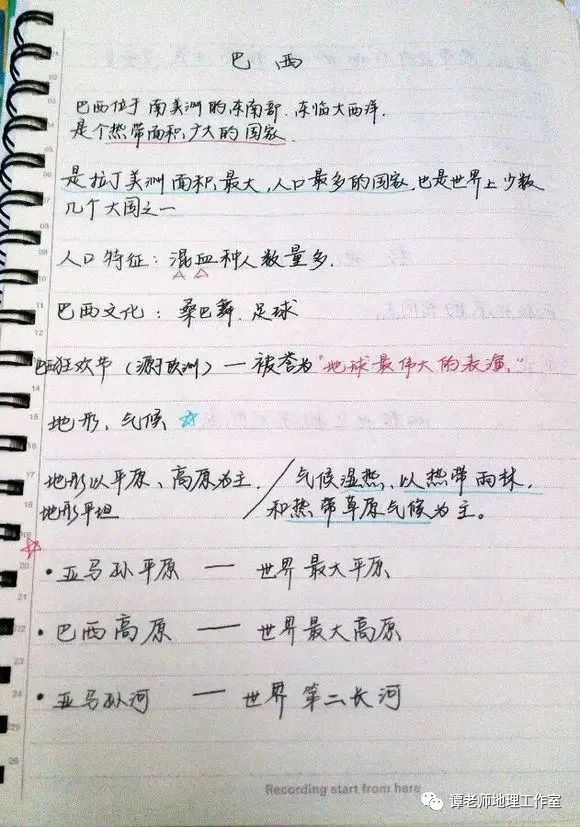 巴西
巴西位于南美洲的东南部，东临大西洋.
是个热带面积广大的国家.
是拉丁美洲面积最大，人口最多的国家，也是世界上少数
几个大国之一
人口特征：混血种人数量多.
巴西文化：桑巴舞、足球
巴西狂欢节（源于欧洲）— 被誉为“地球最伟大的表演”
地形、气候
地形以平原、高原为主. / 气候湿热、以热带雨林.
地形平坦 / 和热带草原气候为主。
• 亚马孙平原 — 世界最大平原
• 巴西高原 — 世界最大高原
• 亚马孙河 — 世界第二长河
Recording start from here
谭老师地理工作室